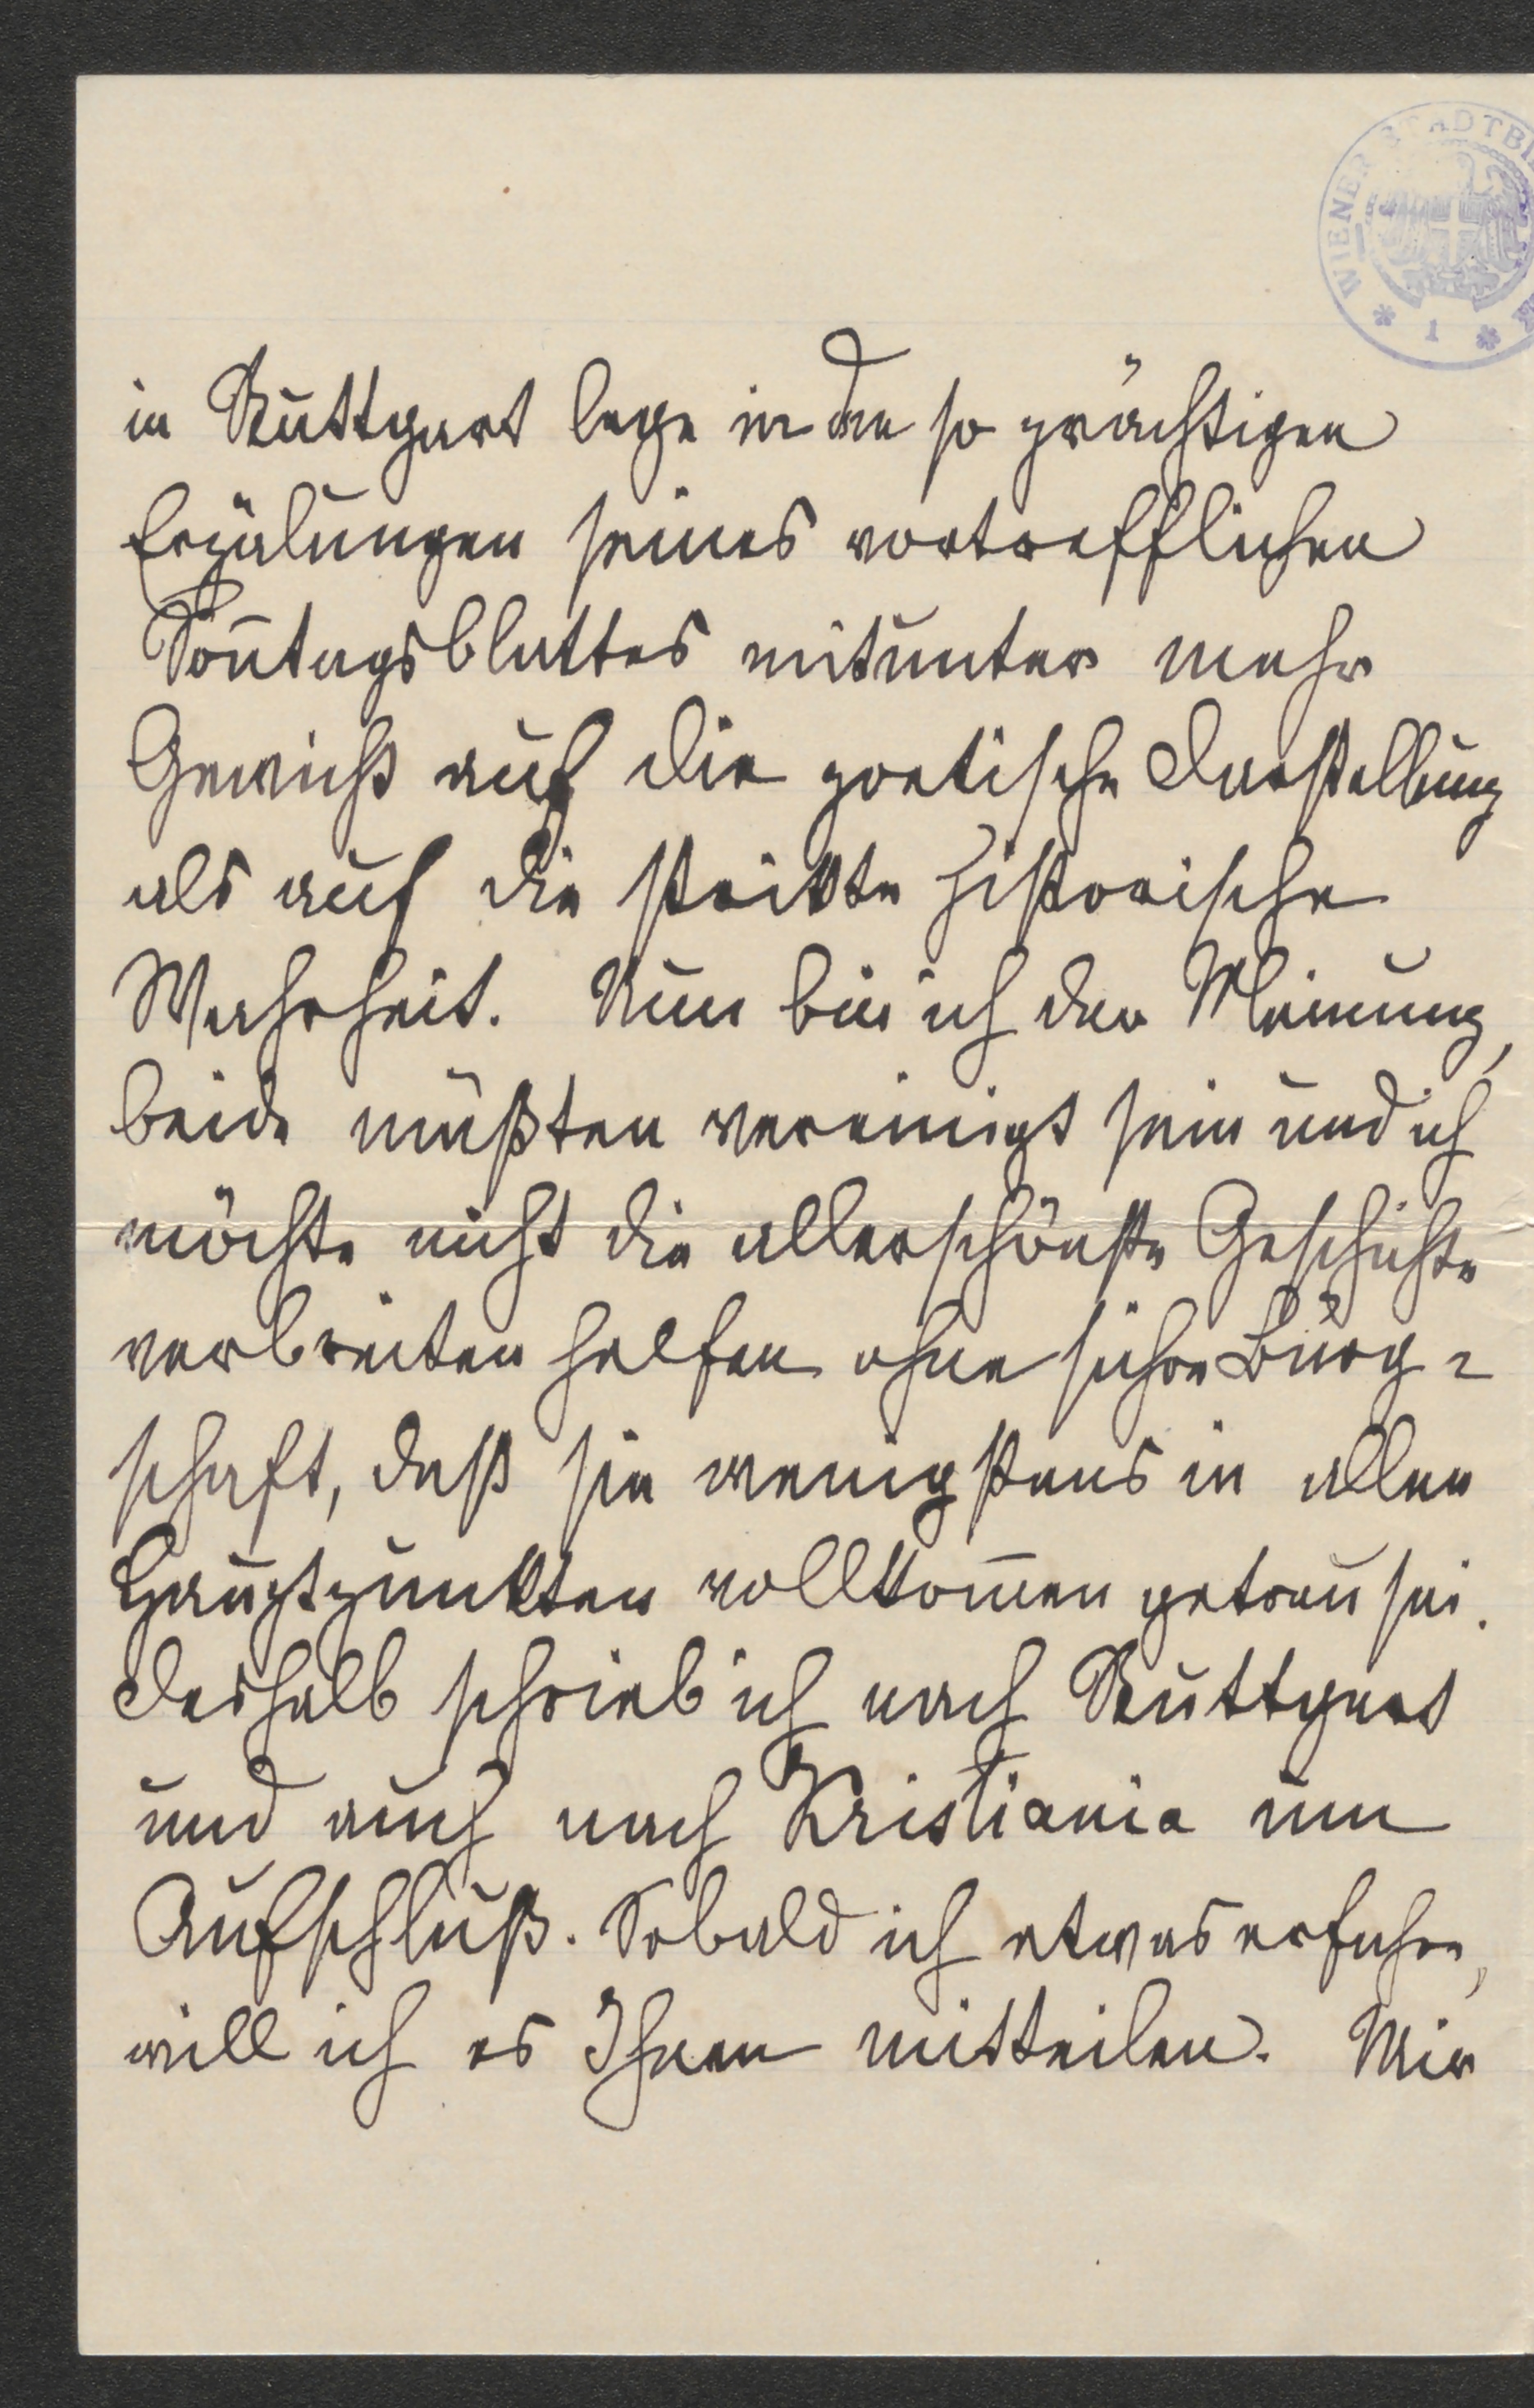 WIENER STADTBI
* 1 *
in Stuttgart lege in den so prächtigen
Erzälungen seines vortrefflichen
Son̄tagsblattes mitunter mehr
Gewicht auf die poetische Darstellung
als auf die strikte historische
Wahrheit. Nun bin ich der Meinung,
beide müßten vereinigt sein und ich
möchte nicht die allerschönste Geschichte
verbreiten helfen ohne sichre Bürg=
schaft, daß sie wenigstens in allen
Hauptpunkten vollkom̄en getreu sei.
Deshalb schrieb ich nach Stuttgart
und auch nach Kristiania um
Aufschluß. Sobald ich etwas erfahre,
will ich es Ihnen mitteilen. Mir